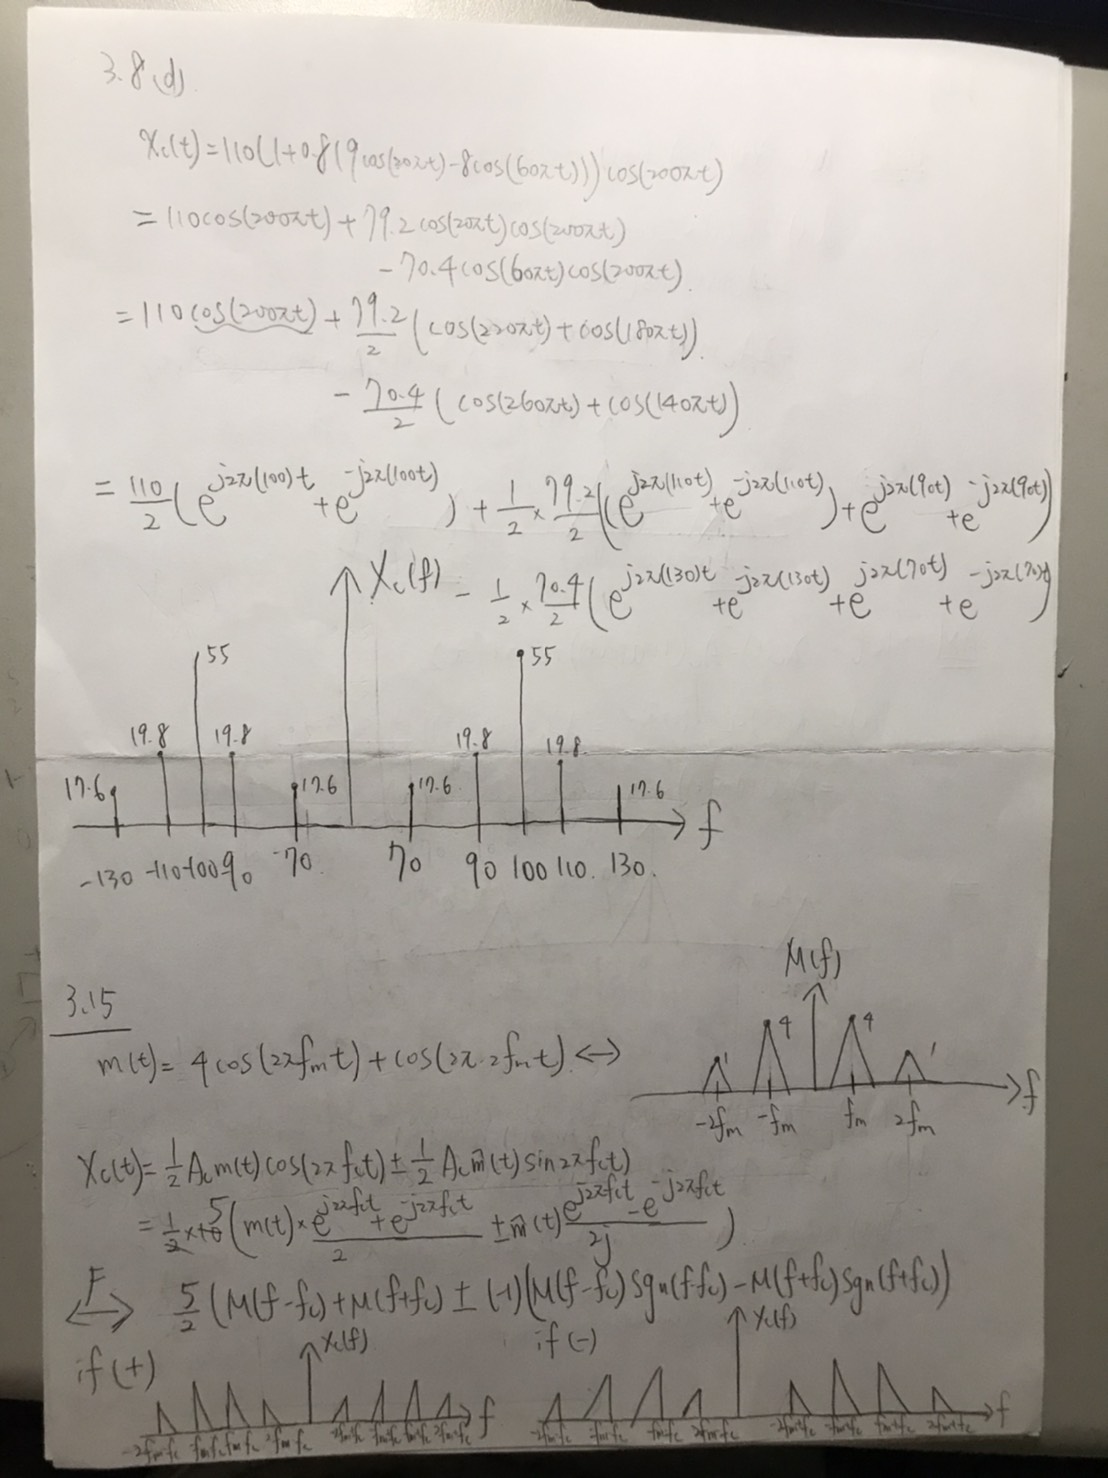 3.8(d)
Xc(t)=110(1+0.8(9cos(20πt)-8cos(60πt)))cos(200πt)
=110cos(200πt)+79.2cos(20πt)cos(200πt)
-70.4cos(60πt)cos(200πt).
=110cos(200πt)+79.2/2(cos(220πt)+cos(180πt)).
-70.4/2(cos(260πt)+cos(140πt))
=110/2(e^j2π(100)t+e^-j2π(100t))+1/2×79.2/2((e^j2π(110t)+e^-j2π(110t))+e^j2π(90t)+e^-j2π(90t))
Xc(f) -1/2×70.4/2(e^j2π(130)t+e^-j2π(130t)+e^j2π(70t)+e^-j2π(70t)
55 55
19.8 19.8 19.8 19.8
17.6 17.6 17.6 17.6
f
-130 -110 -100 90 -70 70 90 100 110. 130.
M(f)
3.15
m(t)=4cos(2πfmt)+cos(2π·2fmt)↔
1 4 4 1
f
-2fm -fm fm 2fm
Xc(t)=1/2Acm(t)cos(2πfct)±1/2Acm̂(t)sin2πfct)
=1/2×10 5(m(t)×(e^j2πfct+e^-j2πfct)/2 ±m̂(t)(e^j2πfct-e^-j2πfct)/2j)
F↔ 5/2(M(f-fc)+M(f+fc)±(-1)(M(f-fc)Sgn(f-fc)-M(f+fc)Sgn(f+fc))
if(+) Xc(f) f
if(-) Xc(f) f